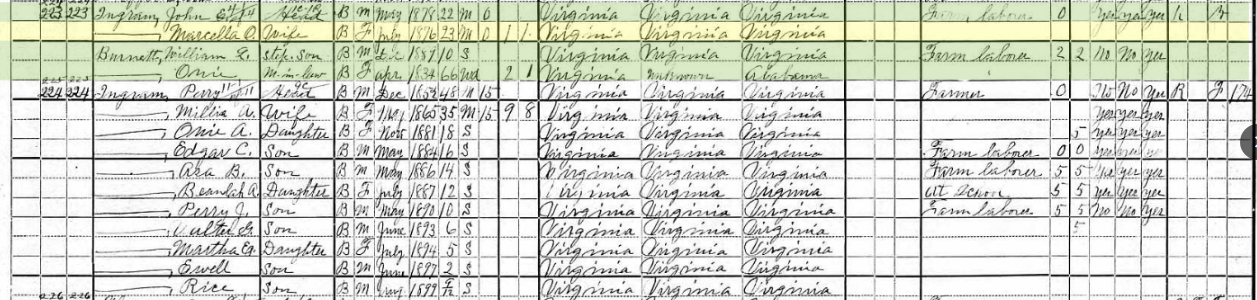 223 223 Ingram, John Head B M May 1878 22 M 0 Virginia Virginia Virginia Farm laborer 0 yes yes yes R
Marcella Wife B F July 1876 23 M 0 1 1 Virginia Virginia Virginia
Burnett, William step.Son B M 1889 10 S Virginia Virginia Virginia Farm laborer 2 2 No No Yes
Onie M-in-law B F apr 1834 66 Wd 2 1 Virginia unknown Alabama
224 224 Ingram, Perry Head B M Dec 48 M 15 Virginia Virginia Virginia Farmer 0 No No Yes R F
Millie A. Wife B F 1865 35 M 15 9 8 Virginia Virginia Virginia yes yes yes
Onie A. Daughter B F Nov 1881 18 S Virginia Virginia Virginia 5 yes yes yes
Edgar C. Son B M May 1884 16 S Virginia Virginia Virginia Farm laborer 0 0 yes yes
B. Son B M May 1886 14 S Virginia Virginia Virginia Farm laborer 5 5 yes yes yes
Daughter B F July 1887 12 S Virginia Virginia Virginia at School 5 5 yes yes yes
Perry J. Son B M May 1890 10 S Virginia Virginia Virginia Farm laborer 5 5 No No yes
Son B M June 1893 6 S Virginia Virginia Virginia 5
Martha Daughter B F July 1894 5 S Virginia Virginia Virginia
Ewell Son B M June 1897 2 S Virginia Virginia Virginia
Rice Son B M 1899 S Virginia Virginia Virginia
226 226